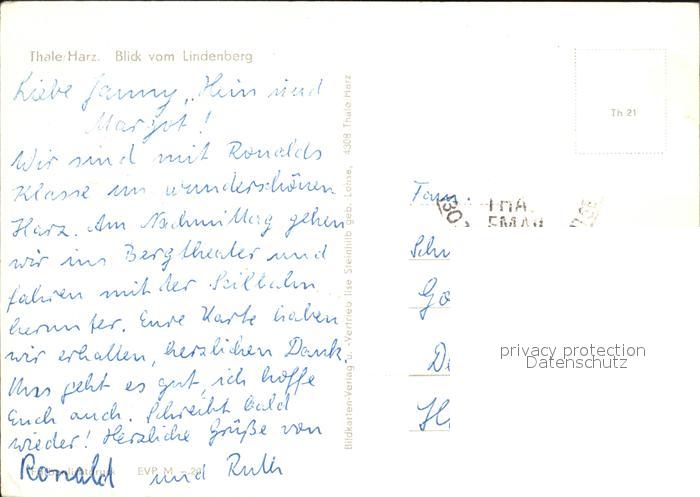 Thale/Harz. Blick vom Lindenberg
Liebe Jenny, Hein und
Margot!
Wir sind mit Ronalds
Klasse im wunderschönen
Harz. Am Nachmittag gehen
wir ins Bergtheater und
fahren mit der Seilbahn
herunter. Eure Karte haben
wir erhalten, herzlichen Dank.
Uns geht es gut, ich hoffe
Euch auch. Schreibt bald
wieder! Herzliche Grüße von
Ronald und Ruth
EVP M
Bildkarten-Verlag u. -Vertrieb Ilse Steinhilb geb. Lohse, 4308 Thale Harz
Th 21
Fam.
Schr
Gö
privacy protection
Datenschutz